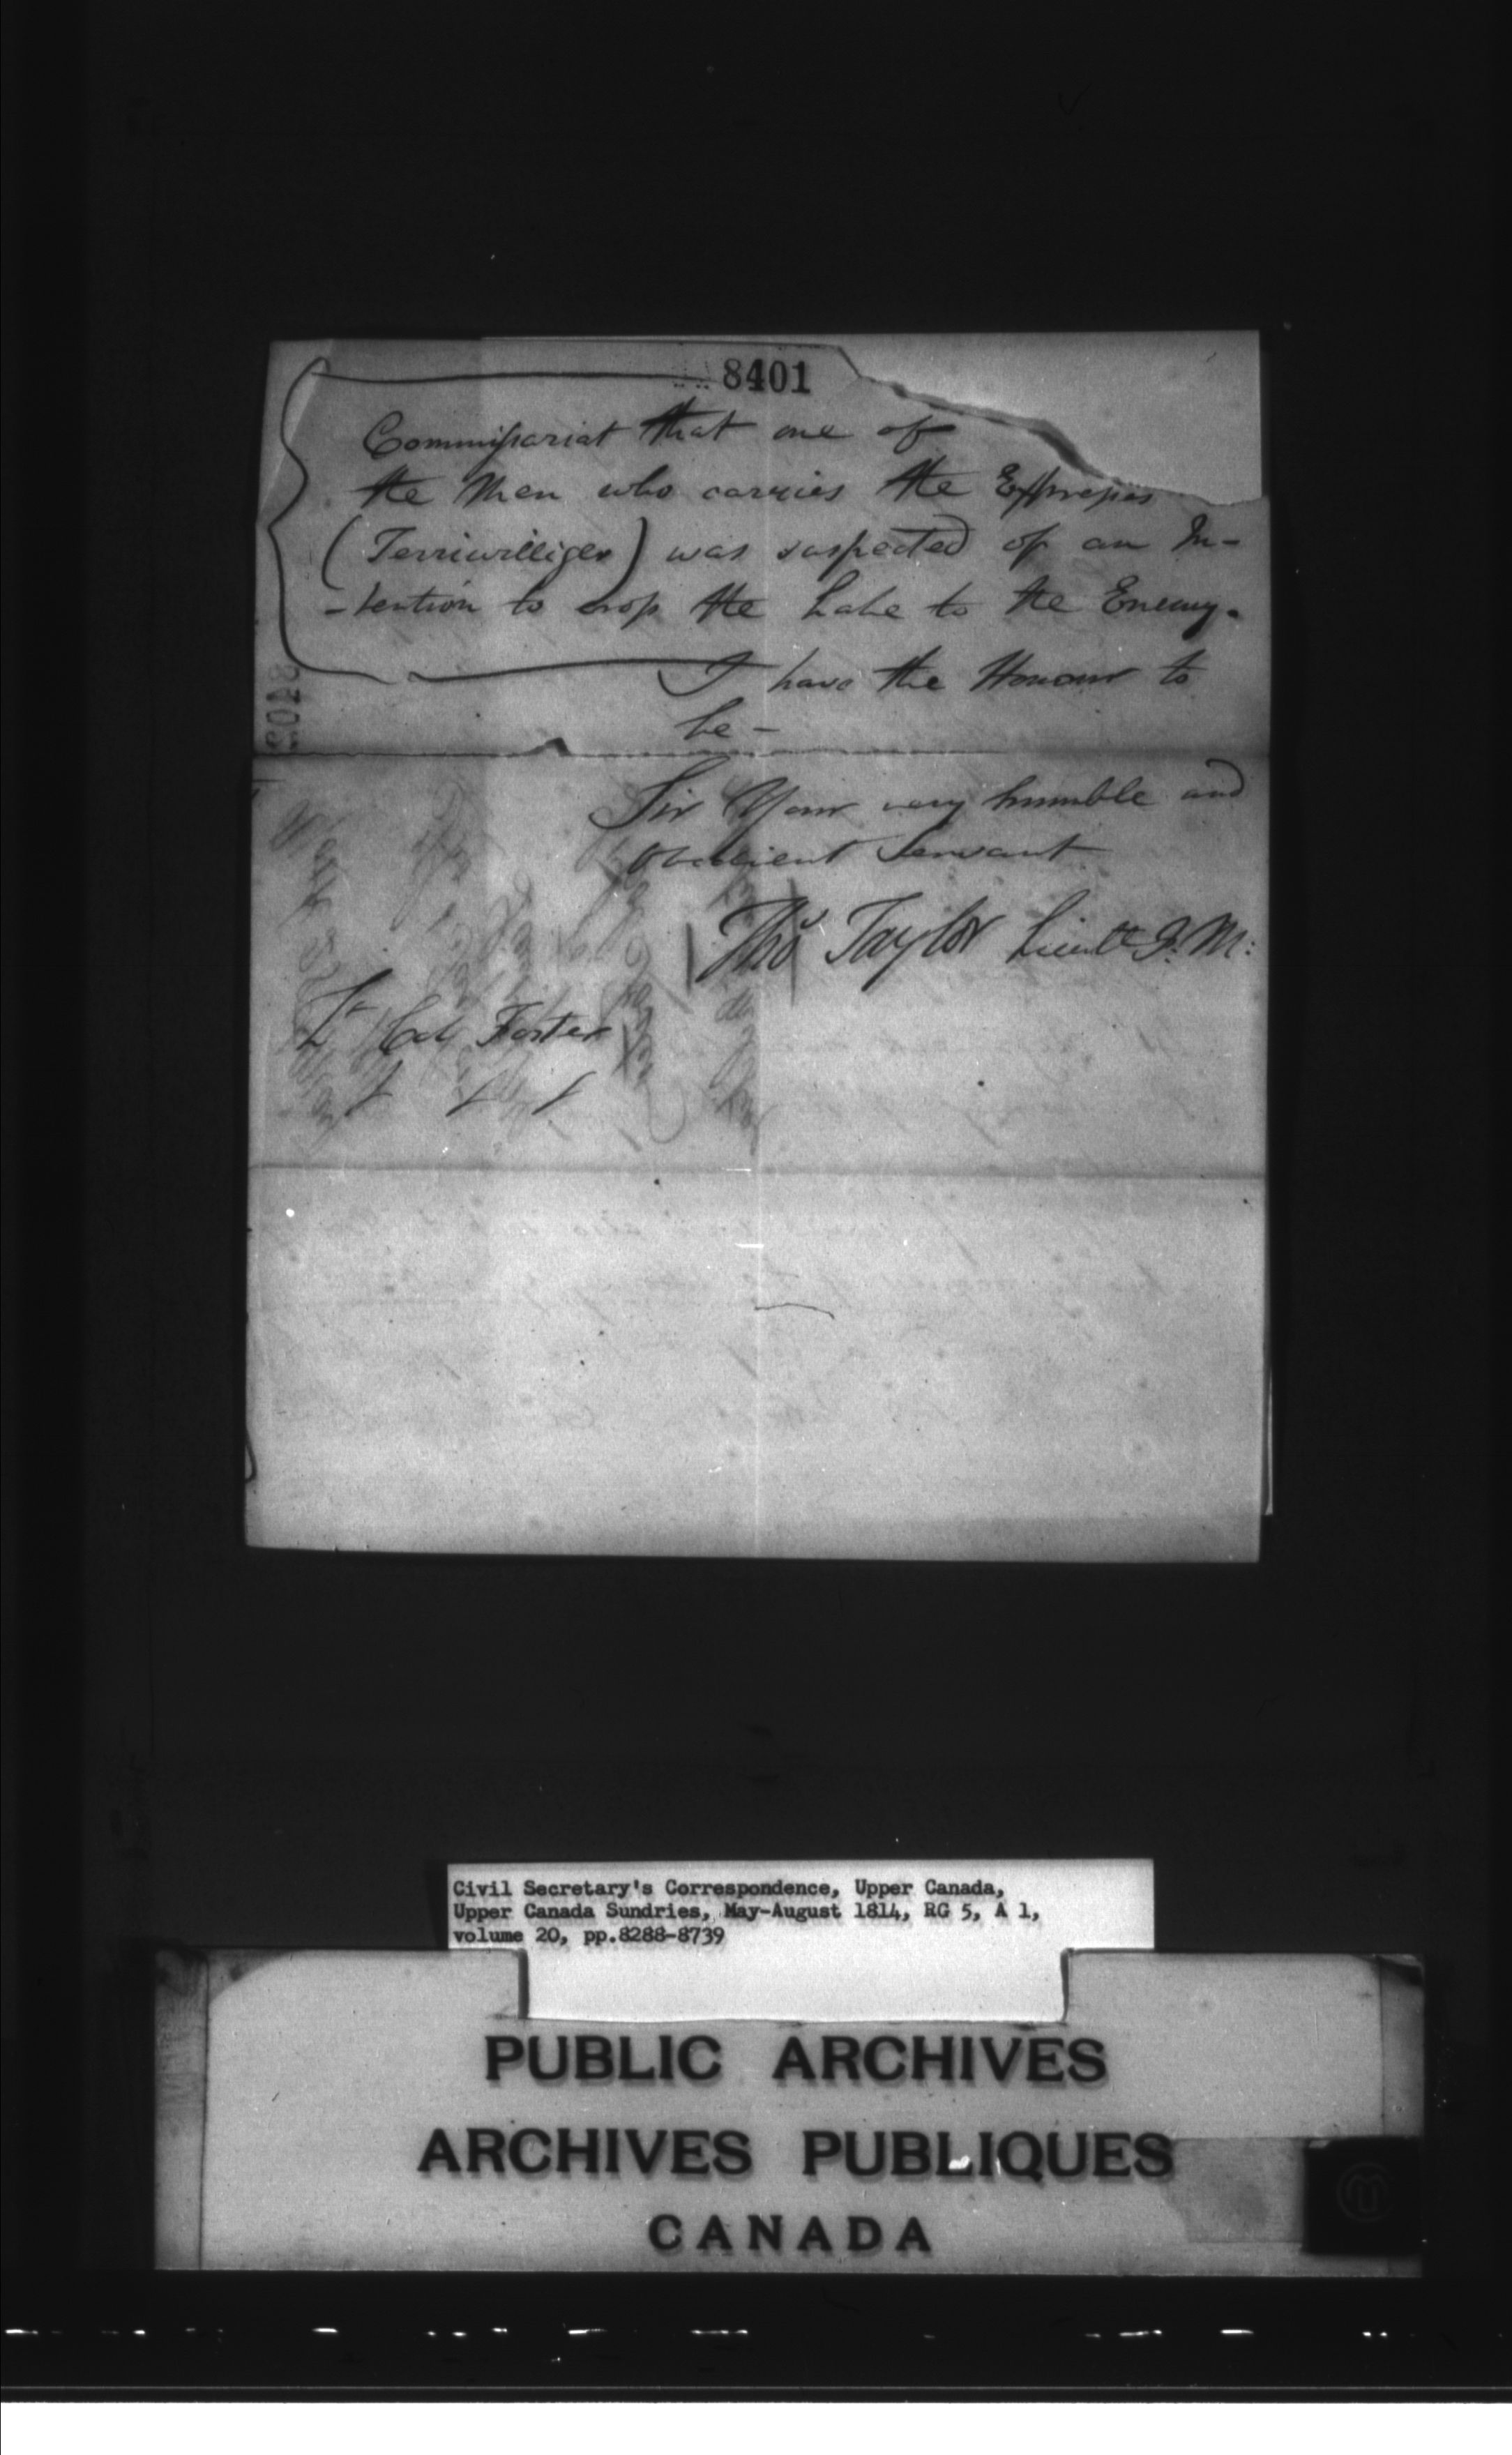 8401
Commissariat that one of
the Men who carries the Expresses
(Terriwilliger) was suspected of an In-
-tention to cross the Lake to the Enemy.
I have the Honour to
be -
Sir Your very humble and
Obedient Servant
Thos Taylor Lieutt
Lt Col Foster
Civil Secretary's Correspondence, Upper Canada,
Upper Canada Sundries, May-August 1814, RG 5, A 1,
volume 20, pp.8288-8739
PUBLIC ARCHIVES
ARCHIVES PUBLIQUES
CANADA